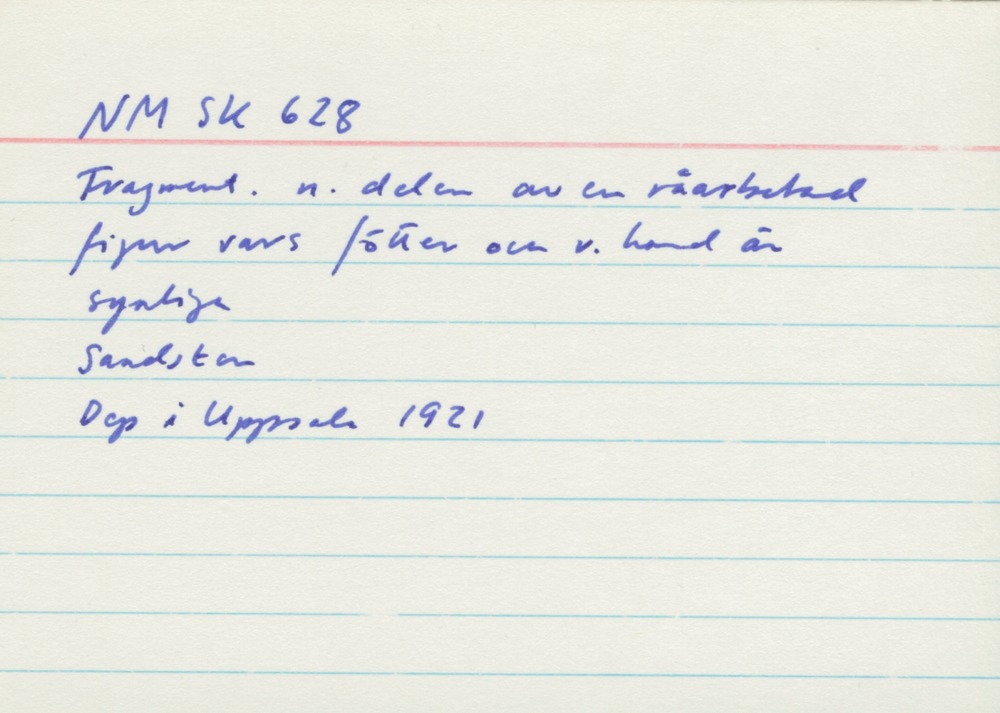 NM SK 628
Fragment. n. delen av en råarbetad
figur vars fötter och v. hand är
synliga
Sandsten
Dep i Uppsala 1921